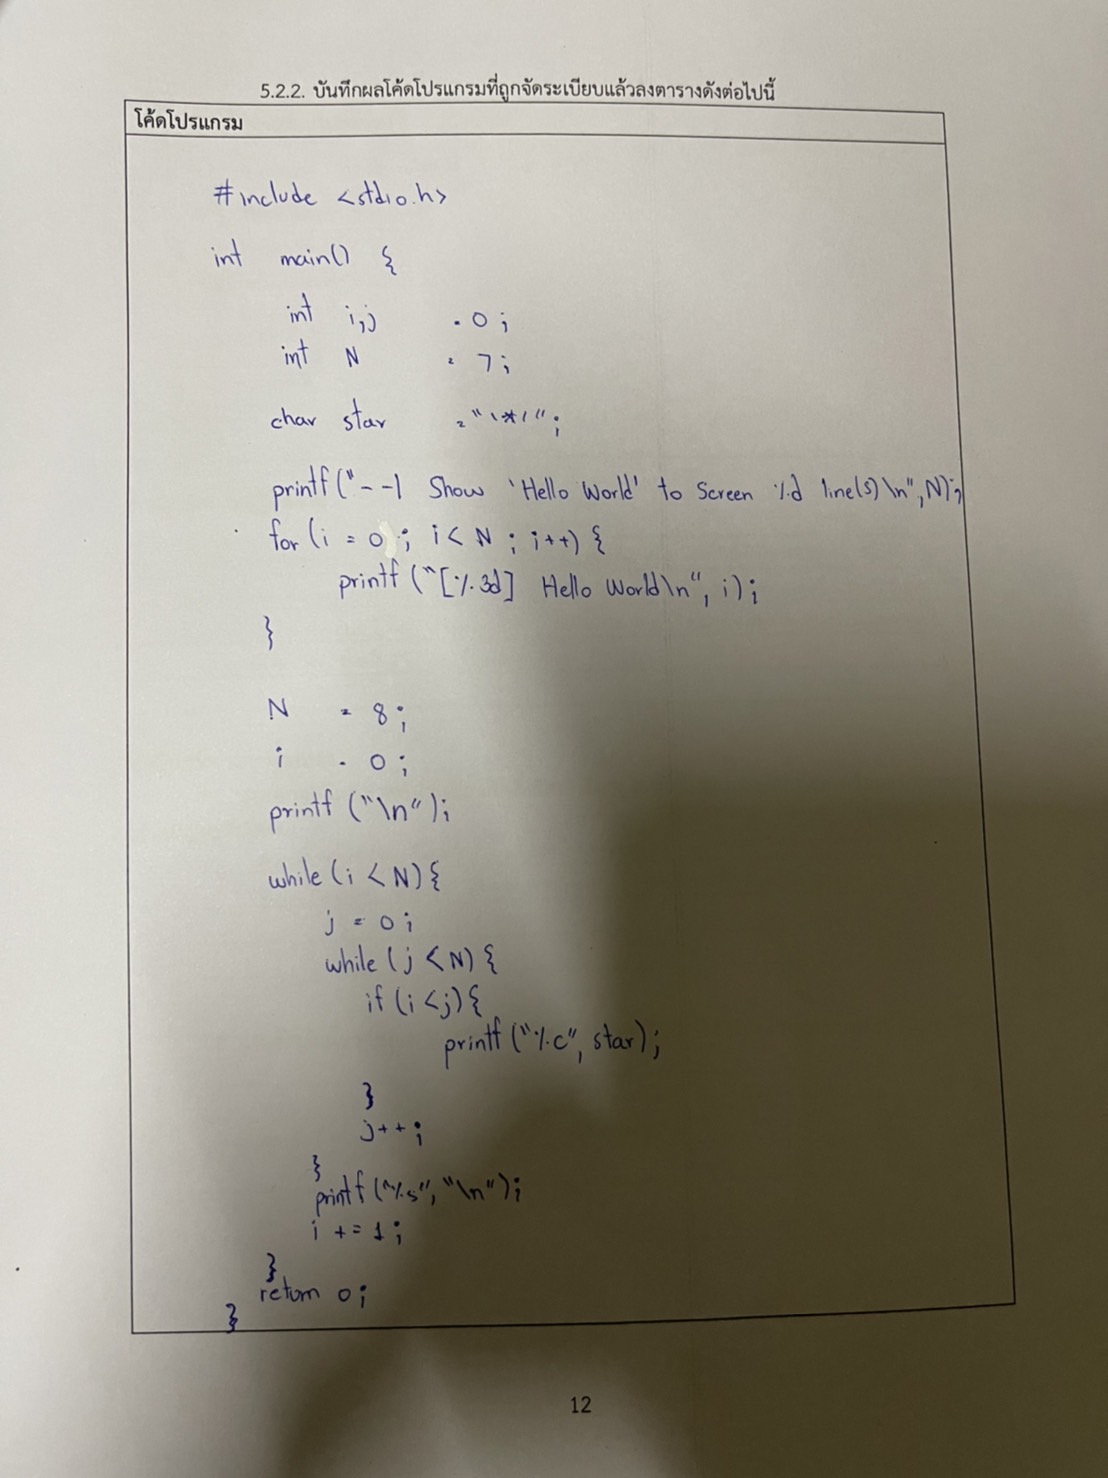 5.2.2. บันทึกผลโค้ดโปรแกรมที่ถูกจัดระเบียบแล้วลงตารางดังต่อไปนี้
โค้ดโปรแกรม
#include <stdio.h>
int main() {
int i,j = 0;
int N = 7;
char star = "'*'";
printf("--| Show 'Hello World' to Screen %d line(s)\n",N);
for (i = 0 ; i < N ; i++) {
printf("[%3d] Hello World\n", i);
}
N = 8;
i = 0;
printf ("\n");
while (i < N) {
j = 0;
while (j < N) {
if (i < j) {
printf ("%c", star);
}
j++;
}
printf ("%s", "\n");
i += 1;
}
return 0;
}
12